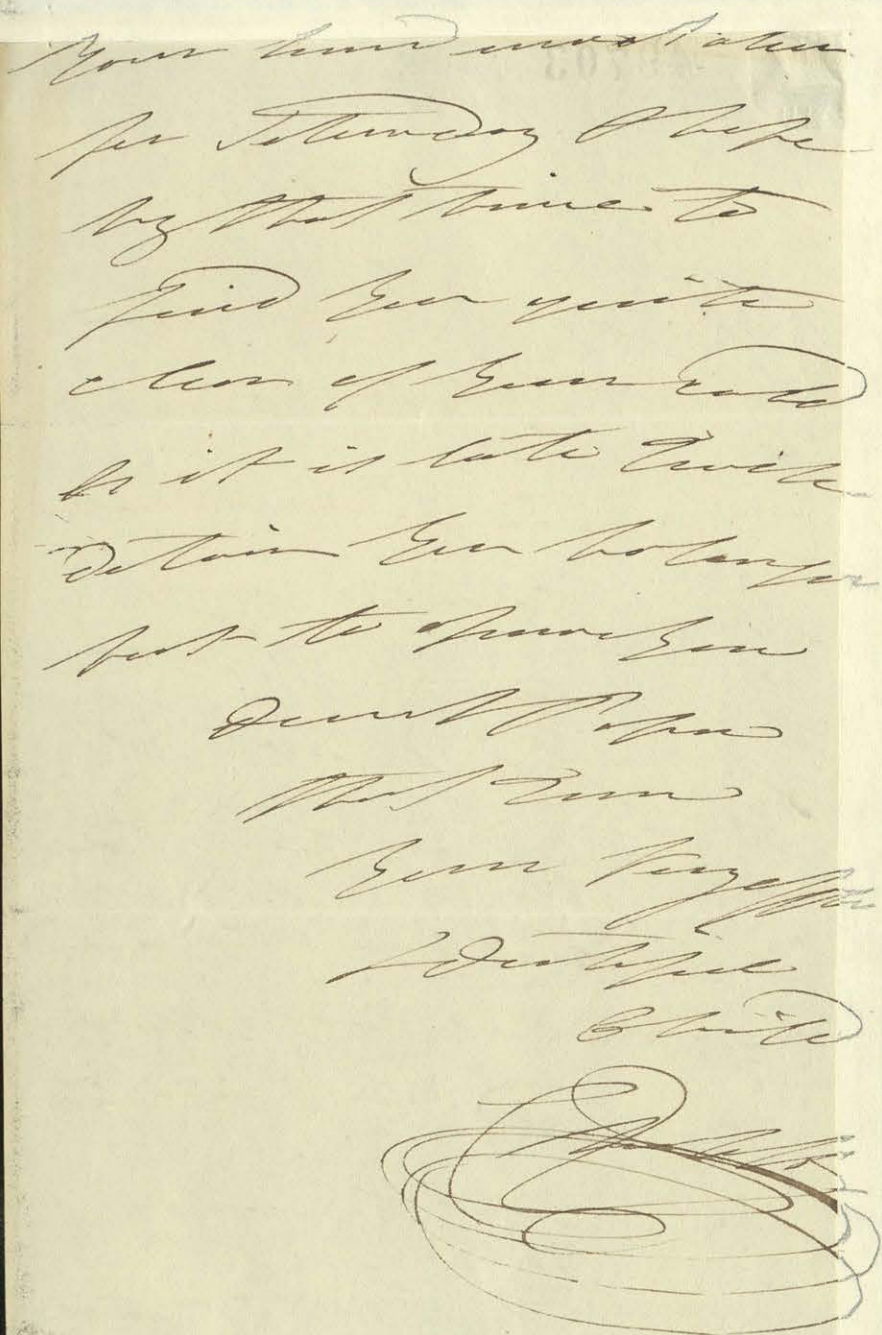 Your kind invitation
for Saturday I hope
by that time to
find You quite
clear of Your cold
As it is late I will
detain You no longer
but to assure You
Dearest Papa
that I am
Your Very Affte
& Dutiful
Child